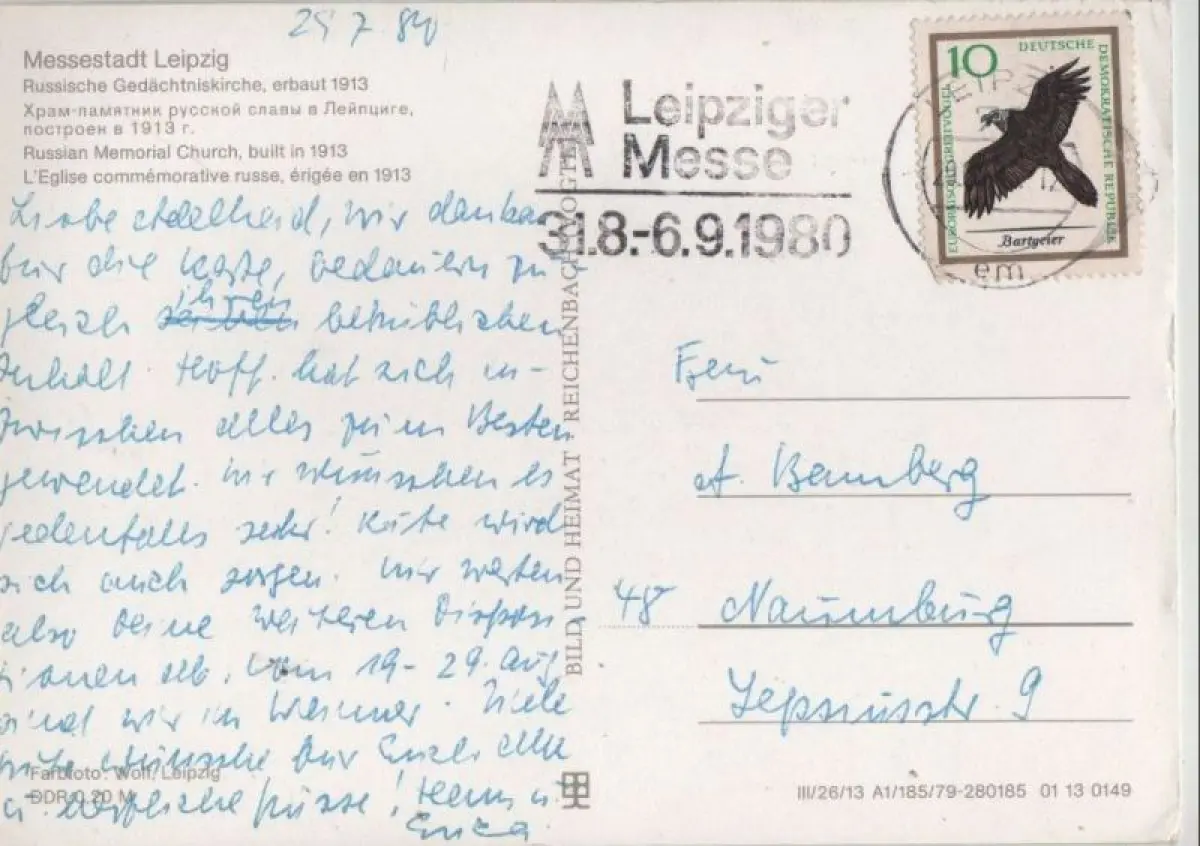 25 7. 80
Messestadt Leipzig
Russische Gedächtniskirche, erbaut 1913
Храм-памятник русской славы в Лейпциге,
построен в 1913 г.
Russian Memorial Church, built in 1913
L'Eglise commémorative russe, érigée en 1913
Liebe Adelheid, wir danken
für die Karte, bedauern zu-
gleich ihren betrüblichen
Inhalt. Hoff. hat sich in-
zwischen alles zum Besten
gewendet. Wir wünschen es
jedenfalls sehr! Käte wird
sich auch sorgen. Wir warten
also Deine weiteren Disposi
tionen ab. Vom 19-29. Aug
sind wir in Weimar. Viele
gute Wünsche für Euch alle
u. herzliche Grüsse! Heinz u.
Erica.
Farbfoto: Wolf, Leipzig
DDR 0,20 M
BILD UND HEIMAT · REICHENBACH (VOGTL)
Leipziger
Messe
31.8.-6.9.1980
LEIPZIG
10
DEUTSCHE
DEMOKRATISCHE REPUBLIK
EUROPAS GREIFVÖGEL
Bartgeier
em
Frau
A. Bamberg
48 Naumburg
Lepsiusstr. 9
III/26/13 A1/185/79-280185 01 13 0149